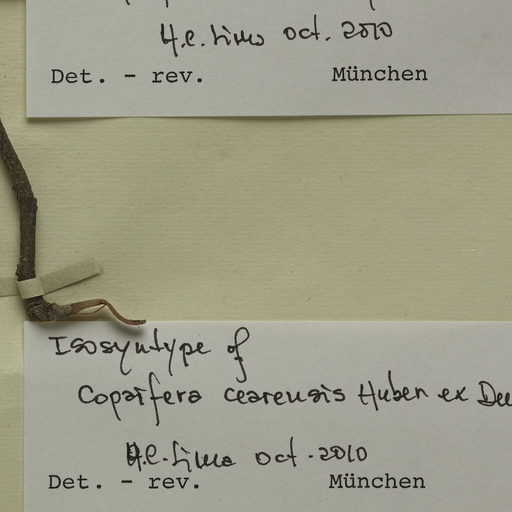 H.C. Lima oct. 2010
Det. - rev. München
Isosyntype of
Copaifera cearensis Huber ex
H.C. Lima oct. 2010
Det. - rev. München